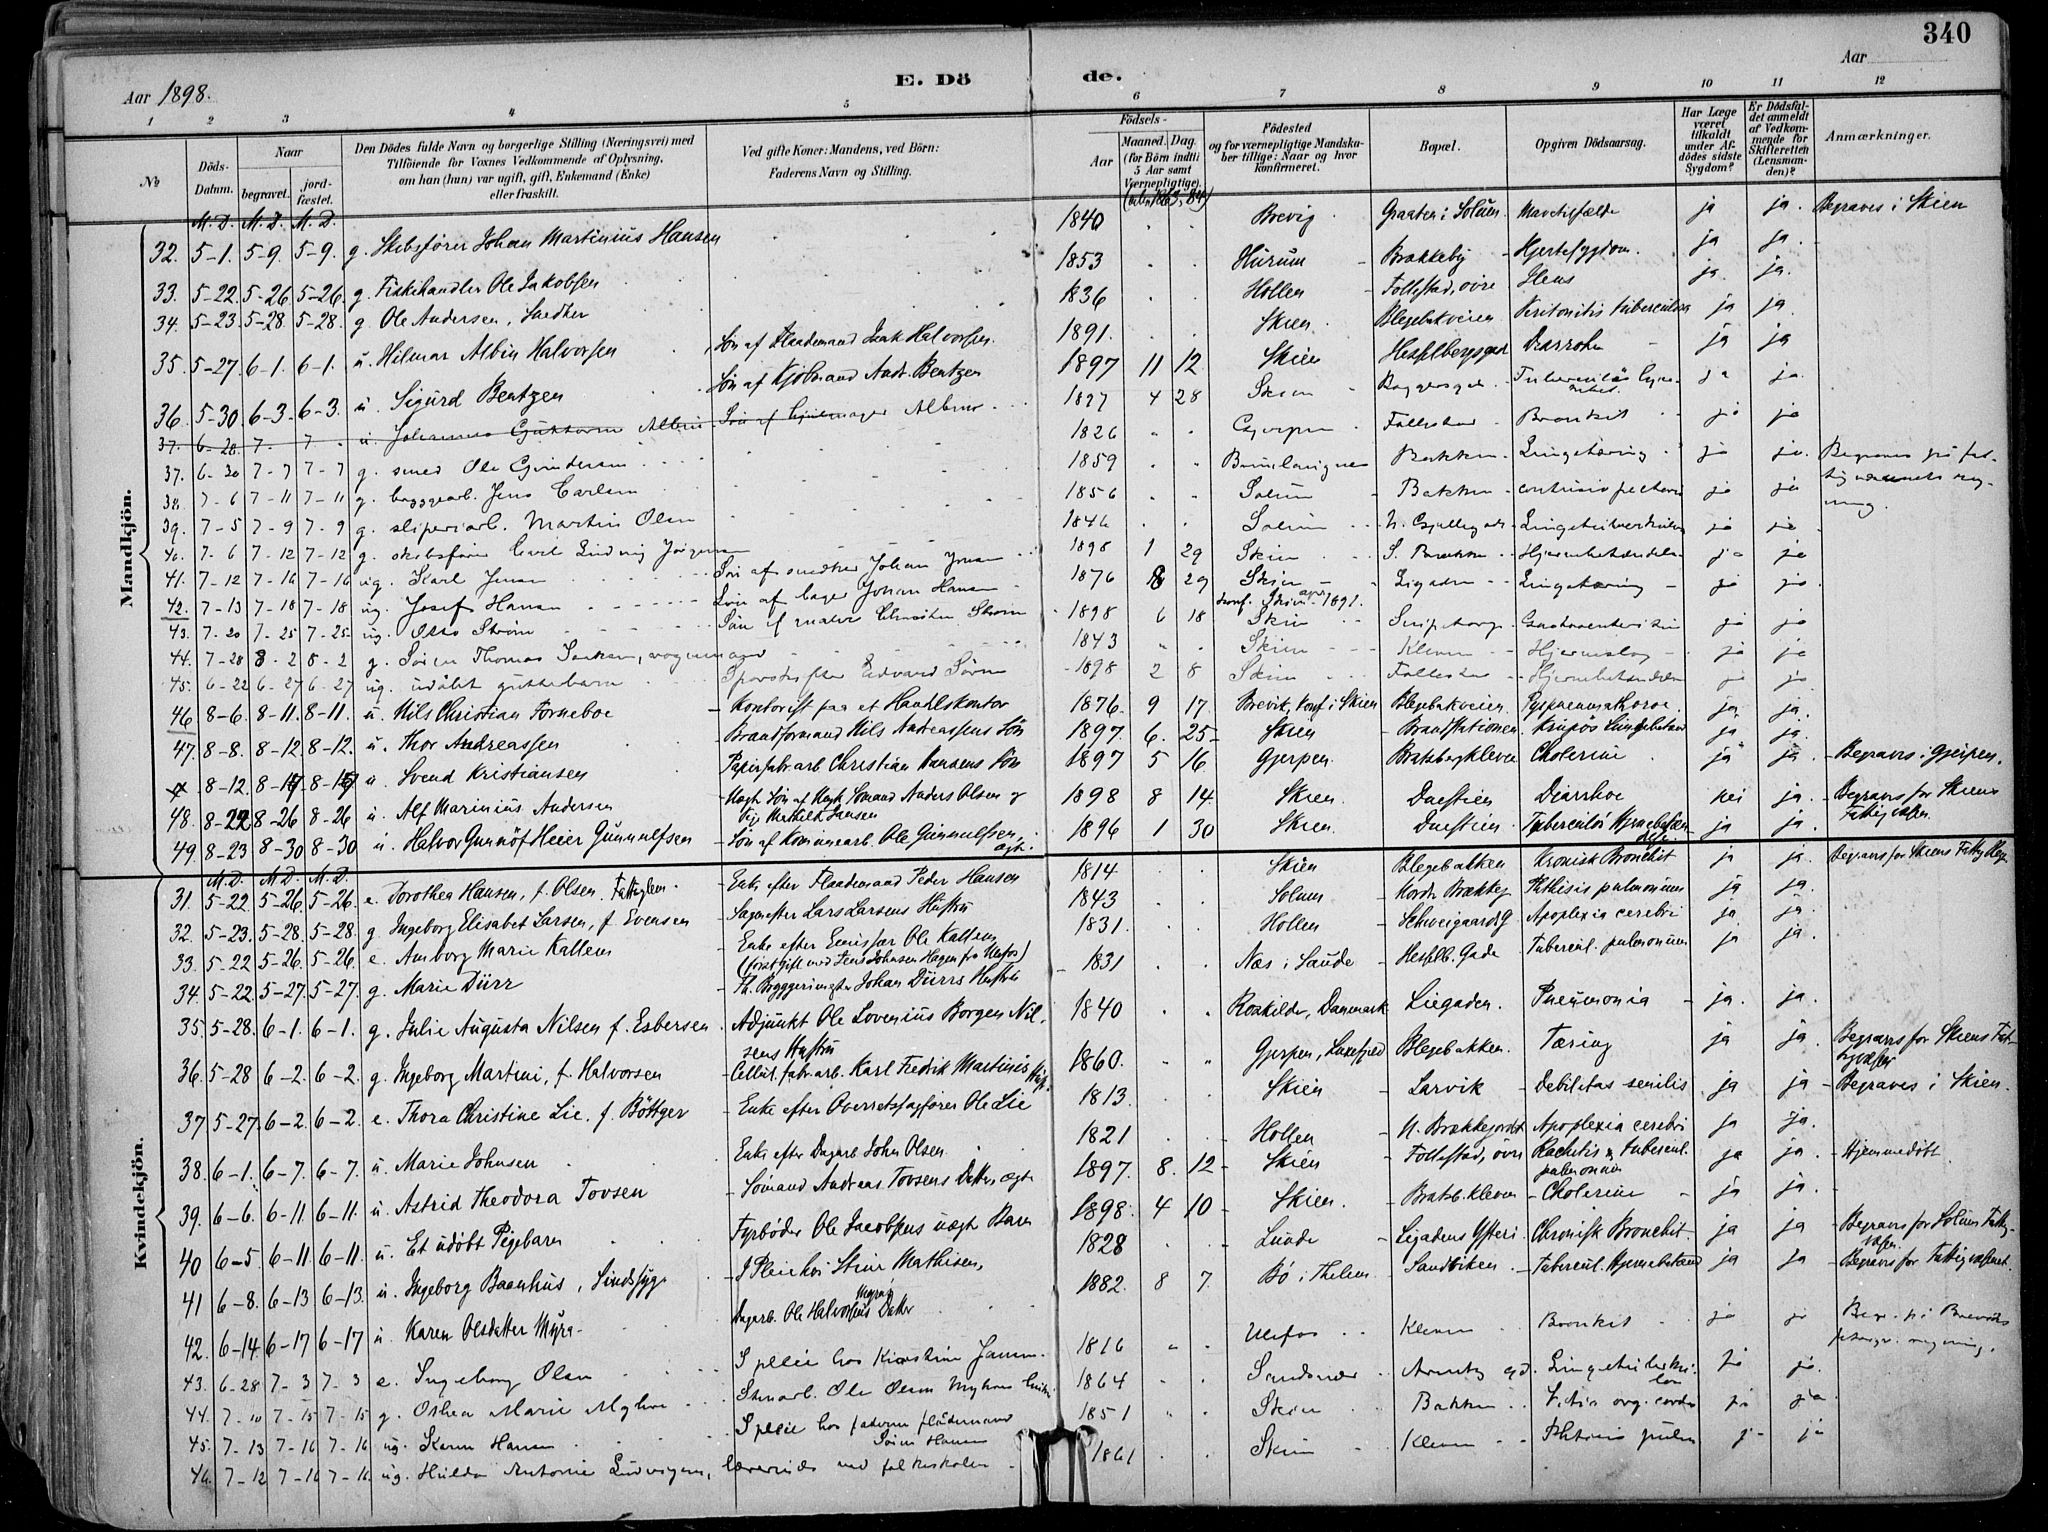 340
E. Döde.
Aar 1898.
Aar
1 2 3 4 5 6 7 8 9 10 11 12
No
Döds-Datum.
Naar begravet. jordfæstet.
Den Dödes fulde Navn og borgerlige Stilling (Næringsvei) med Tilföiende for Voxnes Vedkommende af Oplysning, om han (hun) var ugift, gift, Enkemand (Enke) eller fraskilt.
Ved gifte Koner: Mandens, ved Börn: Faderens Navn og Stilling.
Födsels-
Aar
Maaned. Dag.
(for Börn indtil 5 Aar samt Værnepligtige).
Födested og for værnepligtige Mandskaber tillige: Naar og hvor konfirmeret.
Bopæl.
Opgiven Dödsaarsag.
Har Læge været tilkaldt under Afdödes sidste Sygdom?
Er Dödsfaldet anmeldt af Vedkommende for Skifteretten (Lensmanden)?
Anmærkninger.
M. D. M. D. M. D.
Mandkjön.
32. 5-1. 5-9. 5-9. g. Skibsfører Johan Martinius Hansen 1840 Brevig Graaten i Solum ja ja. Begraves i Skien
33. 5-22. 5-26. 5-26. g. Fiskehandler Ole Jakobsen 1853 Hurum Brækkeby Hjertesygdom ja ja.
34. 5-23. 5-28. 5-28. g. Ole Andersen, Snedker 1836 Hollen Follestad, øvre Ileus ja. ja.
35. 5-27. 6-1. 6-1. u. Hilmar Albin Halvorsen Søn af Flaademand Isak Halvorsen 1891. Skien Blegebakveien Peritonitis tuberculosa ja ja
36. 5-30 6-3. 6-3. u. Sigurd Bentzen Søn af Kjøbmand Andr. Bentzen 1897 11 12. Skien Hesselbergsgad Diarrohe ja ja
37. 6-28. 7- 7 u. Johannes Albin 1897 4 28 Skien ja ja.
37. 6-30 7-7 7-7 g. smed Ole 1826 Gjerpen Follestad Bronkit ja ja
38. 7-6 7-11 7-11 g. bryggearb. Jens Carlsen 1859 Brunlangnes Bakken Lungetæring ja ja. Begraves på fattigvæsenets regning.
39. 7-5 7-9 7-9 g. sliperiarb. Martin Olsen 1856 Solum Bakken contusio pectoris ja ja
40. 7-6 7-12 7-12 g. skibsfører Carl Ludvig Jørgensen 1846 Solum ja ja
41. 7-12 7-16 7-16 ug. Karl Jensen Søn af snedker Johan Jensen 1898 1 29 Skien S. Brække Hjernebetændelse ja ja
42. 7-13 7-18 7-18 ug. Josef Hansen Søn af bager Johan Hansen 1876 8 29 Skien konf. Skien apr 1891. Ligaden Lungetæring ja ja
43. 7-20 7-25 7-25 ug. Otto Strøm Søn af maler Christen Strøm 1898 6 18 Skien Snipetorp Gastroenteritis ja ja
44. 7-28 8-2 8-2 g. Søren Thomas Isaksen, vognmand 1843 Skien Kleven Hjerneslag ja ja
45. 6-22 6-27 6-27 ug. udøbt guttebarn Edvard Søren 1898 2 8 Skien Follestad Hjernebetændelse ja ja
46 8-6. 8-11. 8-11. u. Nils Christian Forneboe Kontorist paa et Handelskontor 1876. 9 17. Brevik, konf. i Skien Blegebakveien. Pyopneumathorax. ja. ja.
47. 8-8. 8-12. 8-12. u. Thor Andreassen Brandformand Nils Andreassens Søn 1897. 6. 25 Skien Brandstationen. Krupøs Lungebetæn ja ja.
8-12. 8-17 8-17 u. Svend Kristiansen Papirfabr.arb. Christian Hansens Søn 1897 5 16 Gjerpen. Bratsbergkleven Cholerine ja ja. Begraves i Gjerpen.
48. 8-22 8-26 8-26 u. Alf Marinius Andersen Uægte Søn af Ugft Sømand Anders Olsen og Pige Mathilde Jansen 1898 8 14. Skien. Duestien Diarrhoe nei ja. Begraves for Skiens Fattigvæsen.
49. 8-23 8-30 8-30 u. Halvor Gunnulf Heier Gunnulfsen Søn af Kommunearb. Ole Gunnulfsen, ægt. 1896 1 30 Skien. Duestien. Tuberculøs Hjernebetændelse ja ja.
Kvindekjön.
M. D. M. D. M. D.
31. 5-22. 5-26. 5-26. e. Dorothea Hansen, f. Olsen. Fattiglem. Enke efter Flaademand Peder Hansen 1814 Skien Blegebakken Kronisk Bronchit ja ja. Begraves for Skiens Fattigvæs.
32. 5-23. 5-28. 5-28. g. Ingeborg Elisabet Larsen, f. Evensen Lars Larsens Hustru 1843 Solum Nordre Brækkeg Phthisis pulmonum ja ja.
33. 5-22 5-26. 5-26. e. Amborg Marie Kaltens Enke efter Ole Kaltens (først gift med Jens Johnsen Hagen fra Ulefos) 1831. Hollen Schweigaardsg Apoplexia cerebri ja ja.
34. 5-22. 5-27. 5-27. g. Marie Dürr Th. Bryggerimester Johan Dürrs Hustru 1831 Næs i Saude Hesselb. Gade Tubercul. pulmonum ja ja.
35. 5-28. 6-1. 6-1. g. Julie Augusta Nilsen f. Esbersen Adjunkt Ole Lovenius Borgen Nilsens Hustru 1840 Roskilde, Danmark Liegaden. Pneumonia ja. ja.
36. 5-28 6-2. 6-2. g. Ingeborg Martini, f. Halvorsen Cellul.fabr.arb. Karl Fredrik Martinis Hust. 1860. Gjerpen, Luxefjeld Blegebakken. Tæring ja ja. Begraves for Skiens Fattigvæsen
37 5-27. 6-2. 6-2. e. Thora Christine Lie. f. Böttger Enke efter Overretssagfører Ole Lie 1813. Skien Larvik Debilitas senilis ja ja Begraves i Skien.
38. 6-1. 6-7. 6-7. u. Marie Johnsen Enke efter Dagarb. John Olsen 1821 Hollen N. Brækkegaardst Apoplexia cerebri ja ja.
39. 6-6. 6-11. 6-11. u. Astrid Theodora Tovsen Sømand Andreas Tovsens Datter, ægte 1897. 8. 12 Skien Follestad, øvre Rachitis & tubercul. pulmonum ja ja. Hjemmedøbt
40 6-5. 6-11. 6-11. u. Et udøbt Pigebarn Fyrbøder Ole Jacobsens uægt. Barn 1898. 4 10 Skien. Bratsb.kleven Cholerine ja ja.
41 6-8. 6-13 6-13. u. Ingeborg Baanhus, Sindssyg I Pleie hos Stine Mathisen, 1828 Lunde Ligadens Yfteri. Chronisk Bronchit. ja ja Begraves for Solum Fattigvæsen.
42. 6-14. 6-17 6-17 u. Karen Olsdatter Myra Dagarb. Ole Halvorsens Myras Datter 1882. 8 7. Bø i Thelem. Sandviken Tubercul. Hjernebetænd ja ja Begraves for Fattigvæsenet.
43. 6-28 7-3 7-3 e. Ingeborg Olsen I pleie hos Kirstine Jansen 1816 Ulefos Kleven Bronkit ja ja
44. 7-10 7-15 7-15 g. Othea Marie Myhre Stenarb. Ole Olsen Myhres hustru 1864 Sandsvær ja ja.
45. 7-13 7-16 7-16 ug. Karen Hansen I pleie hos faderen flødemand Søren Hansen 1851 Skien Bakken Vitia org. cordis ja ja
46. 7-12 7-16 7-16 ug. Hulda Antonie Ludvigsen, lærerinde ved folkeskolen 1861 Skien Kleven Phtisis pulm ja ja